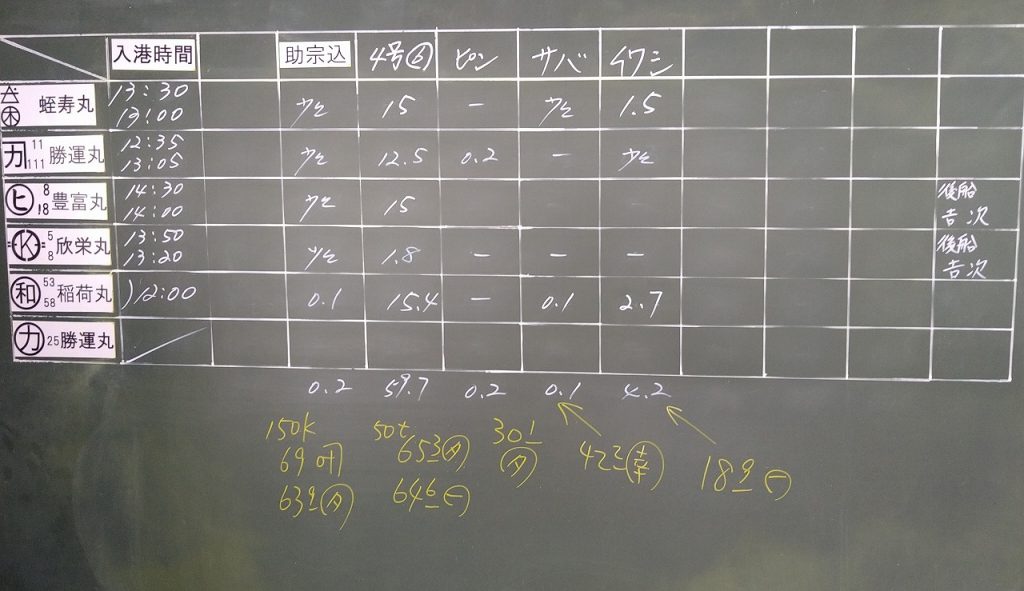 入港時間 助宗込 4号 ピン サバ イワシ
蛭寿丸 13:30 13:00 少々 15 — 少々 1.5
カ 11 111 勝運丸 12:35 13:05 少々 12.5 0.2 — 少々
ヒ 8 18 豊富丸 14:30 14:00 少々 15 後船 吉次
K 5 8 欣栄丸 13:50 13:20 少々 1.8 — — — 後船 吉次
和 53 58 稲荷丸 )12:00 0.1 15.4 — 0.1 2.7
カ 25 勝運丸
0.2 59.7 0.2 0.1 4.2
150k 50t 301
69 653 (タ) (タ) 18
639 (タ) 646 (一)